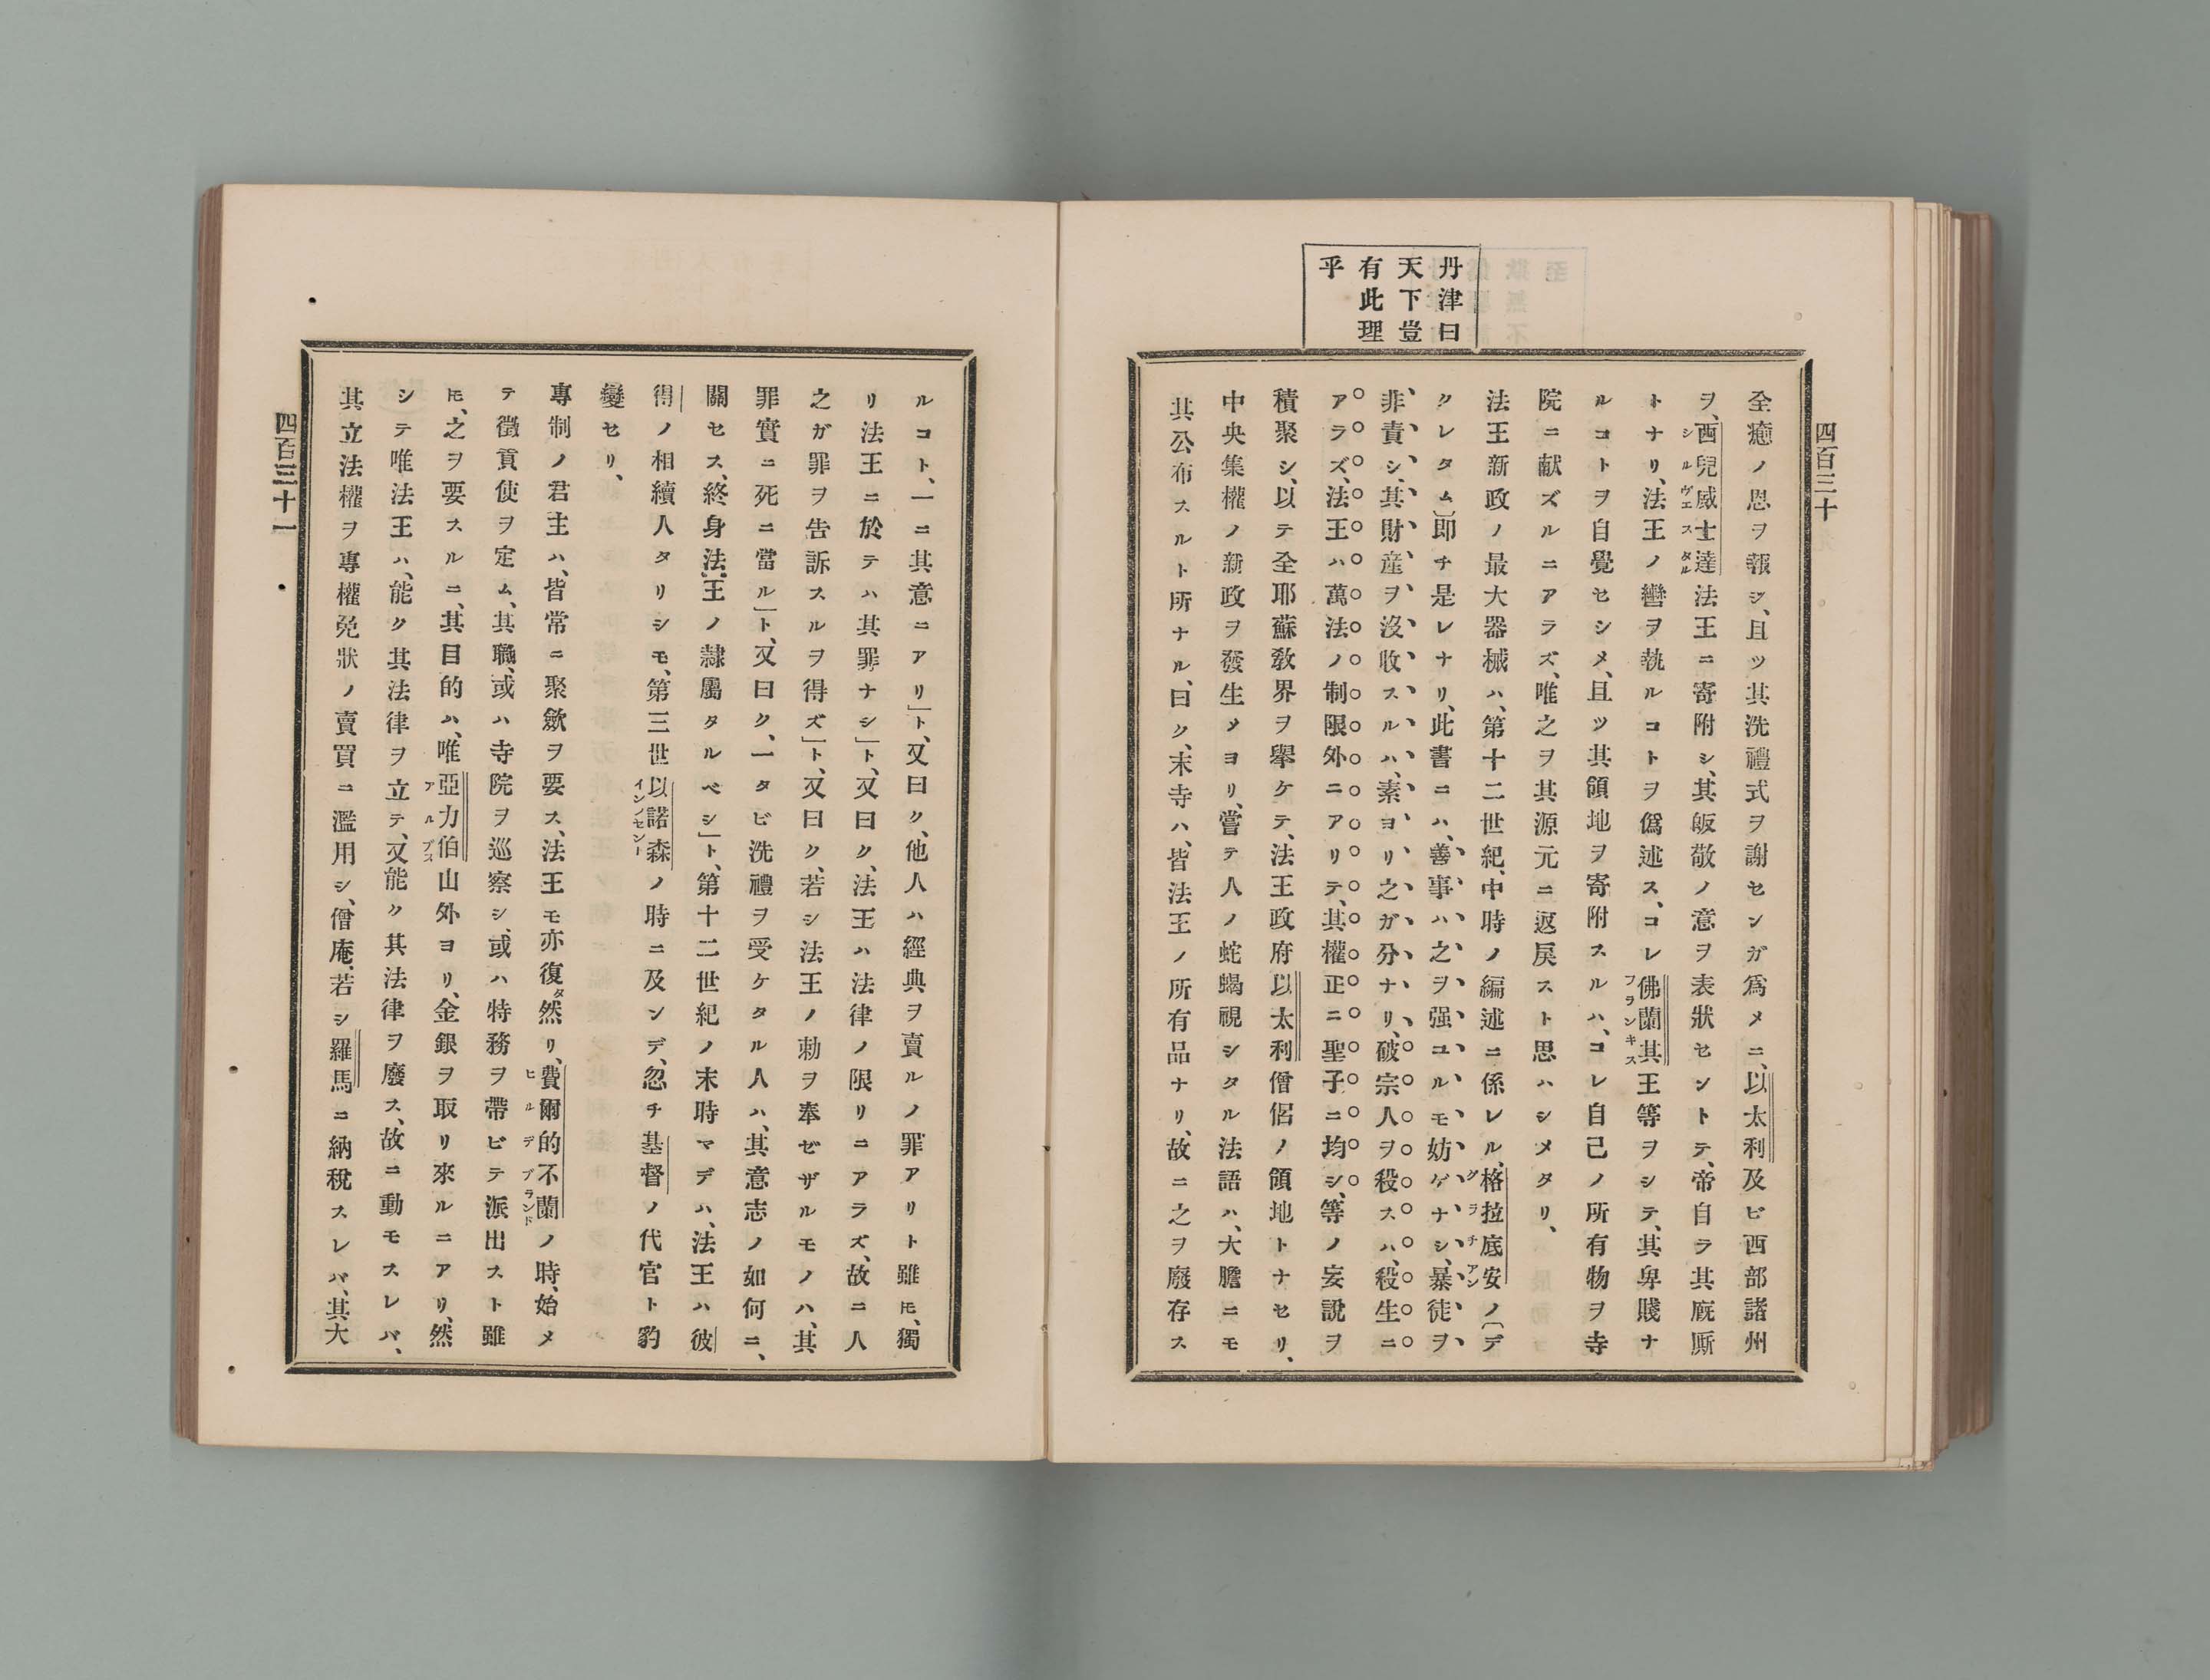 四百三十
丹津曰
天下豈
有此理
乎
全癒ノ恩ヲ報ジ、且ツ其洗禮式ヲ謝センガ爲メニ、以太利及ビ西部諸州
ヲ、西兒威士達法王ニ寄附シ、其皈敬ノ意ヲ表狀セントテ、帝自ラ其廐厮
シルヴエスタル
トナリ、法王ノ轡ヲ執ルコトヲ僞述ス、コレ佛蘭其王等ヲシテ、其卑賤ナ
フランキス
ルコトヲ自覺セシメ、且ツ其領地ヲ寄附スルハ、コレ自己ノ所有物ヲ寺
院ニ献ズルニアラズ、唯之ヲ其源元ニ返戻スト思ハシメタリ、
法王新政ノ最大器械ハ、第十二世紀、中時ノ編述ニ係レル、格拉底安ノ〔デ
グラチアン
クレタム〕即チ是レナリ、此書ニハ、善事ハ之ヲ强ユルモ妨ゲナシ、暴徒ヲ
非責シ、其財産ヲ沒收スルハ、素ヨリ之ガ分ナリ、破宗人ヲ殺スハ、殺生ニ
アラズ、法王ハ萬法ノ制限外ニアリテ、其權正ニ聖子ニ均シ、等ノ妄説ヲ
積聚シ、以テ全耶蘇敎界ヲ擧ケテ、法王政府以太利僧侶ノ領地トナセリ、
中央集權ノ新政ヲ發生メヨリ、嘗テ人ノ蛇蝎視シタル法語ハ、大膽ニモ
其公布スルト所ナル、曰ク、末寺ハ、皆法王ノ所有品ナリ、故ニ之ヲ廢存ス
ルコト、一ニ其意ニアリ」ト、又曰ク、他人ハ經典ヲ賣ルノ罪アリト雖𪜈、獨
リ法王ニ於テハ其罪ナシ」ト、又曰ク、法王ハ法律ノ限リニアラズ、故ニ人
之ガ罪ヲ告訴スルヲ得ズ」ト、又曰ク、若シ法王ノ勅ヲ奉ゼザルモノハ、其
罪實ニ死ニ當ル」ト、又曰ク、一タビ洗禮ヲ受ケタル人ハ、其意志ノ如何ニ、
關セス、終身法王ノ隷屬タルベシ」ト、第十二世紀ノ末時マデハ、法王ハ彼
得ノ相續人タリシモ、第三世以諾森ノ時ニ及ンデ、忽チ基督ノ代官ト豹
インノセンー
變セリ、
專制ノ君主ハ、皆常ニ聚歛ヲ要ス、法王モ亦復タ然リ、費爾的不蘭ノ時、始メ
ヒルデブランド
テ徵貢使ヲ定ム、其職、或ハ寺院ヲ巡察シ、或ハ特務ヲ帶ビテ派出スト雖
𪜈、之ヲ要スルニ、其目的ハ、唯亞力伯山外ヨリ、金銀ヲ取リ來ルニアリ、然
アルプス
シテ唯法王ハ、能ク其法律ヲ立テ、又能ク其法律ヲ廢ス、故ニ動モスレバ、
其立法權ヲ專權免狀ノ賣買ニ濫用シ、僧庵、若シ羅馬ニ納稅スレバ、其大
四百三十一